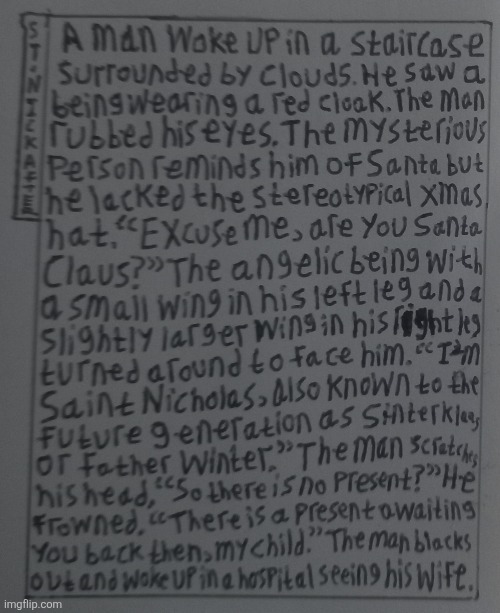 ST. NICK AFTER
A man woke up in a staircase
surrounded by clouds. He saw a
being wearing a red cloak. The man
rubbed his eyes. The mysterious
person reminds him of Santa but
he lacked the stereotypical xmas
hat. "Excuse me, are you Santa
Claus?" The angelic being with
a small wing in his left leg and a
slightly larger wing in his right leg
turned around to face him. "I'm
Saint Nicholas, also known to the
future generation as Sinterklaas
or Father Winter." The man scratches
his head, "So there is no present?" He
frowned. "There is a present awaiting
you back then, my child." The man blacks
out and woke up in a hospital seeing his wife.
imgflip.com